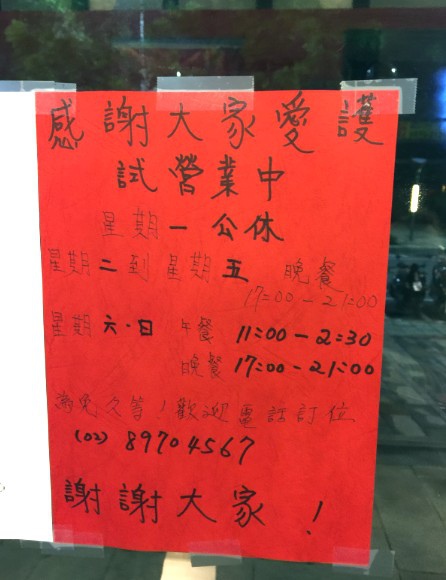 感謝大家愛護
試營業中
星期一公休
星期二到星期五 晚餐
17:00-21:00
星期六.日 午餐 11:00-2:30
晚餐 17:00-21:00
為免久等!歡迎電話訂位
(02) 89704567
謝謝大家!